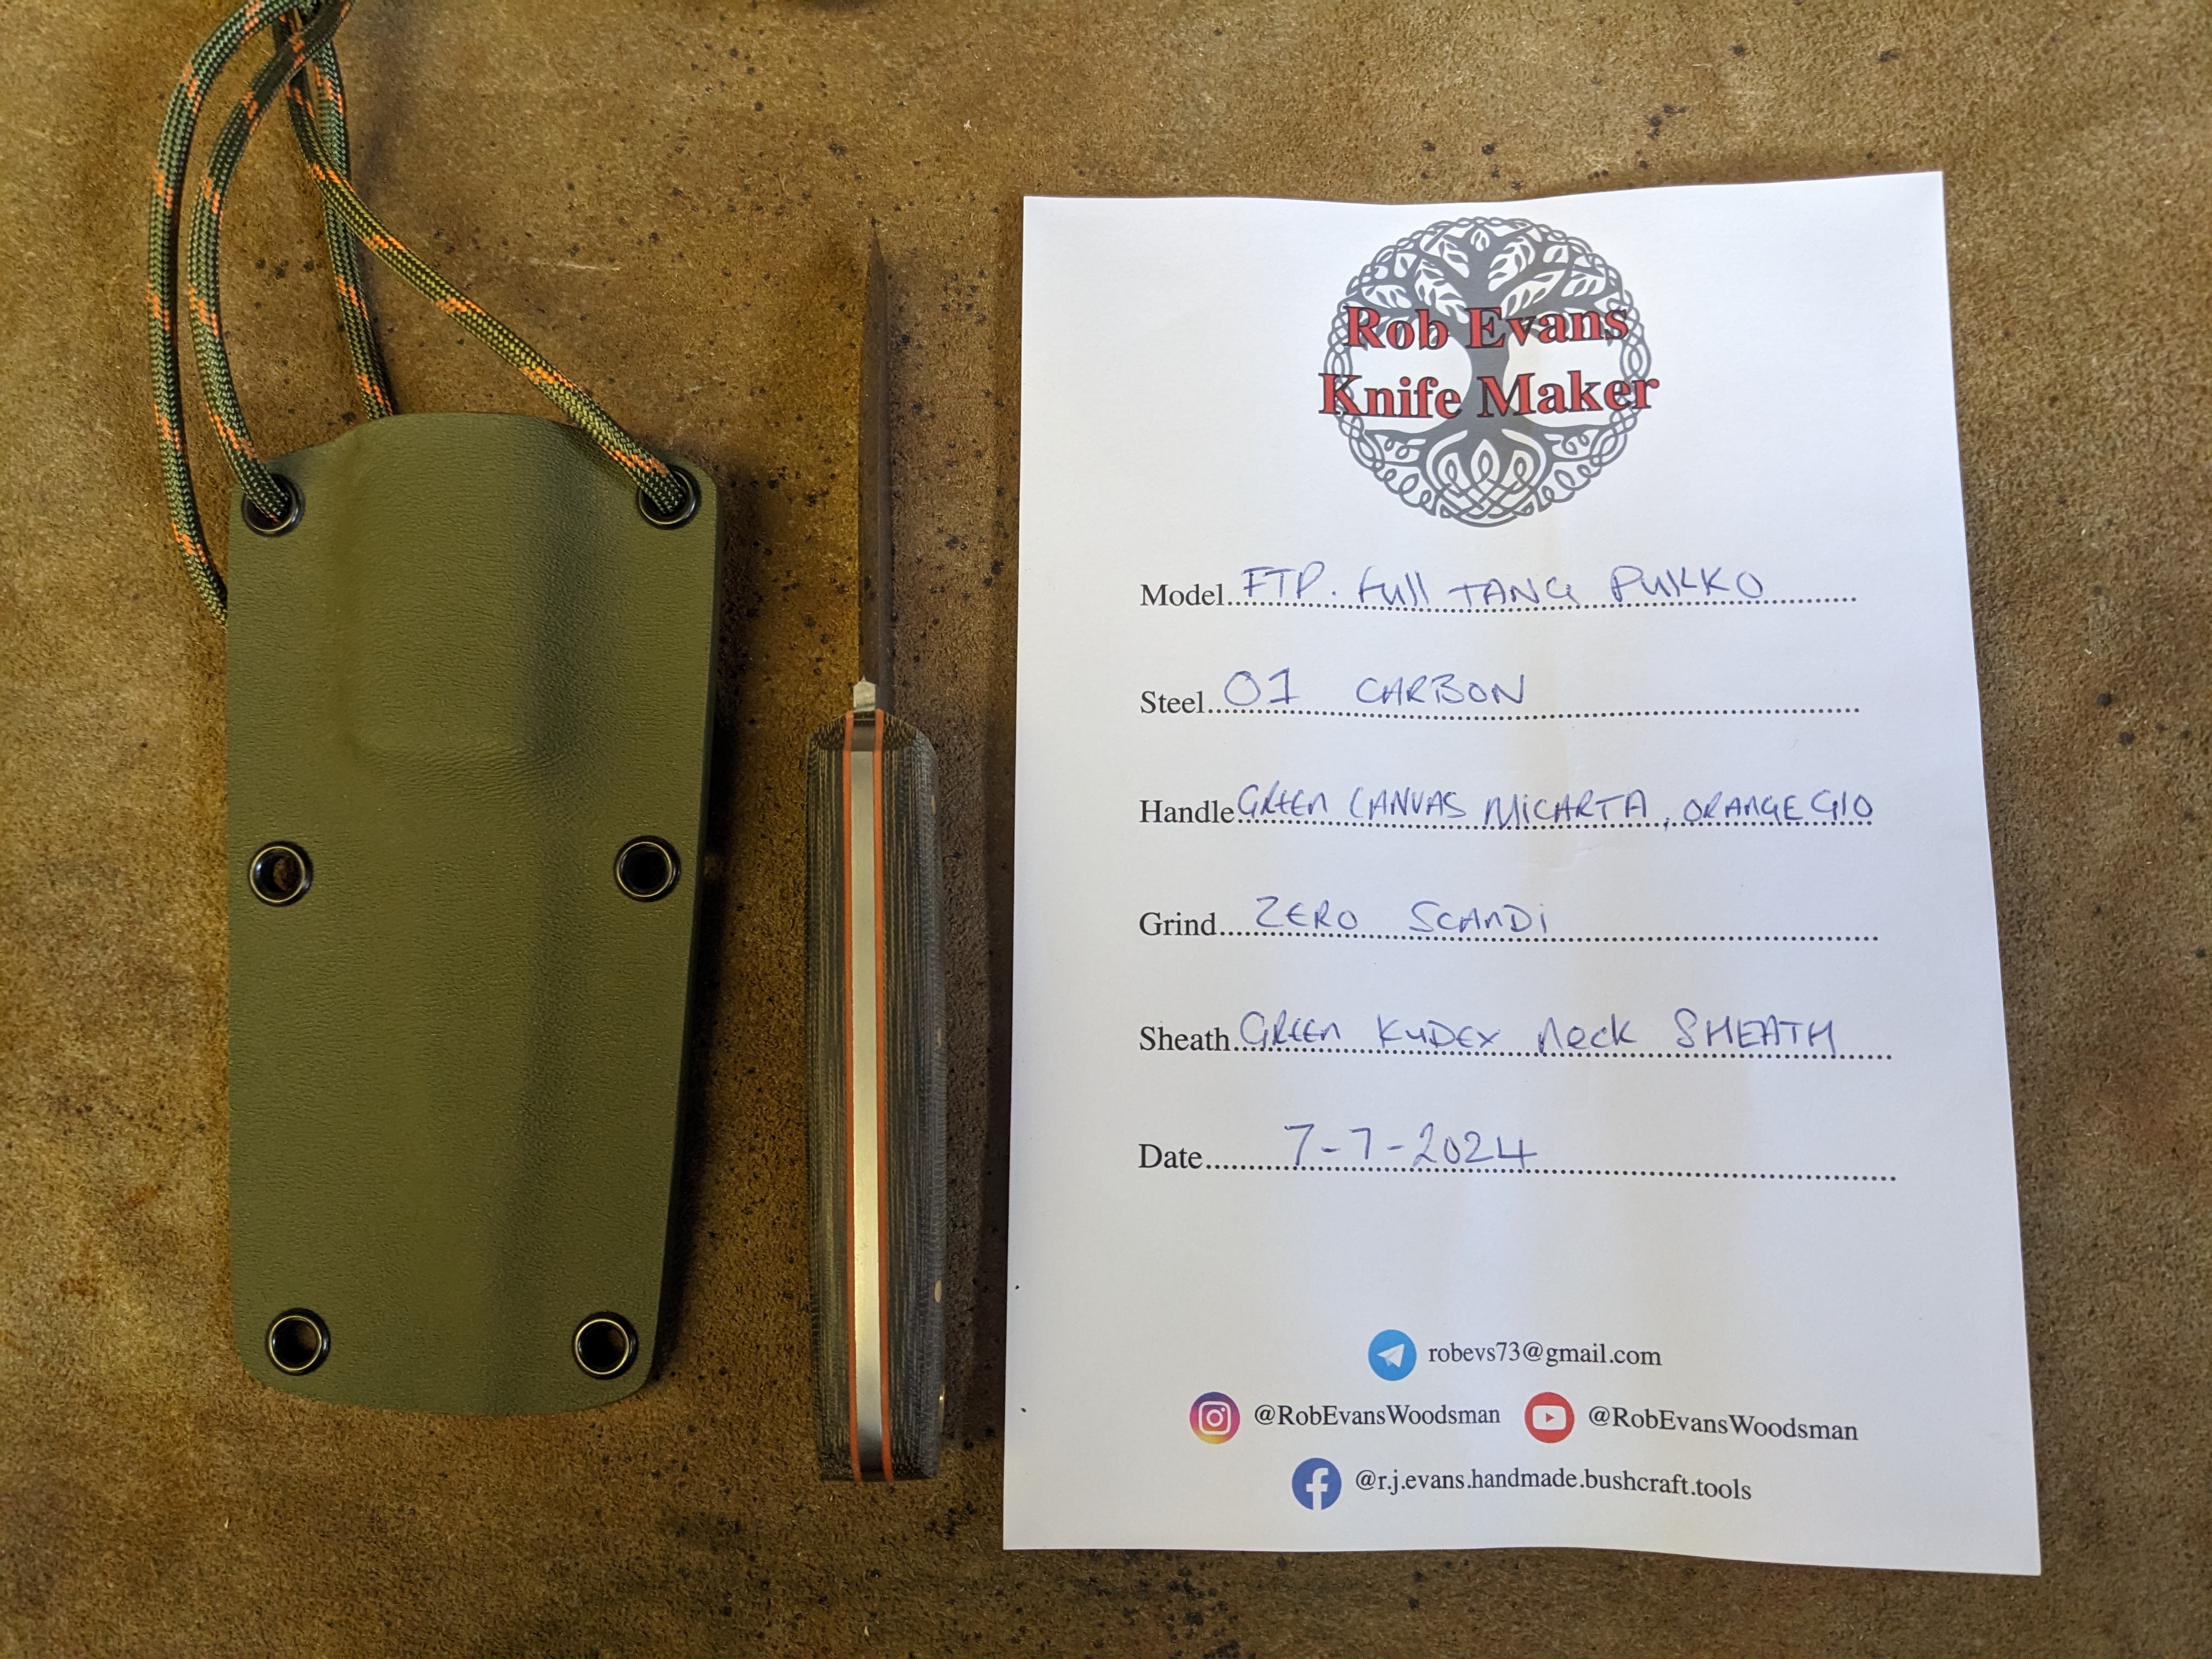 Rob Evans
Knife Maker
Model FTP. Full TANG PUKKO
Steel O1 CARBON
Handle GREEN CANVAS MICARTA, ORANGE G10
Grind ZERO SCANDI
Sheath GREEN KYDEX Neck SHEATH
Date 7-7-2024
robevs73@gmail.com
@RobEvansWoodsman @RobEvansWoodsman
@r.j.evans.handmade.bushcraft.tools